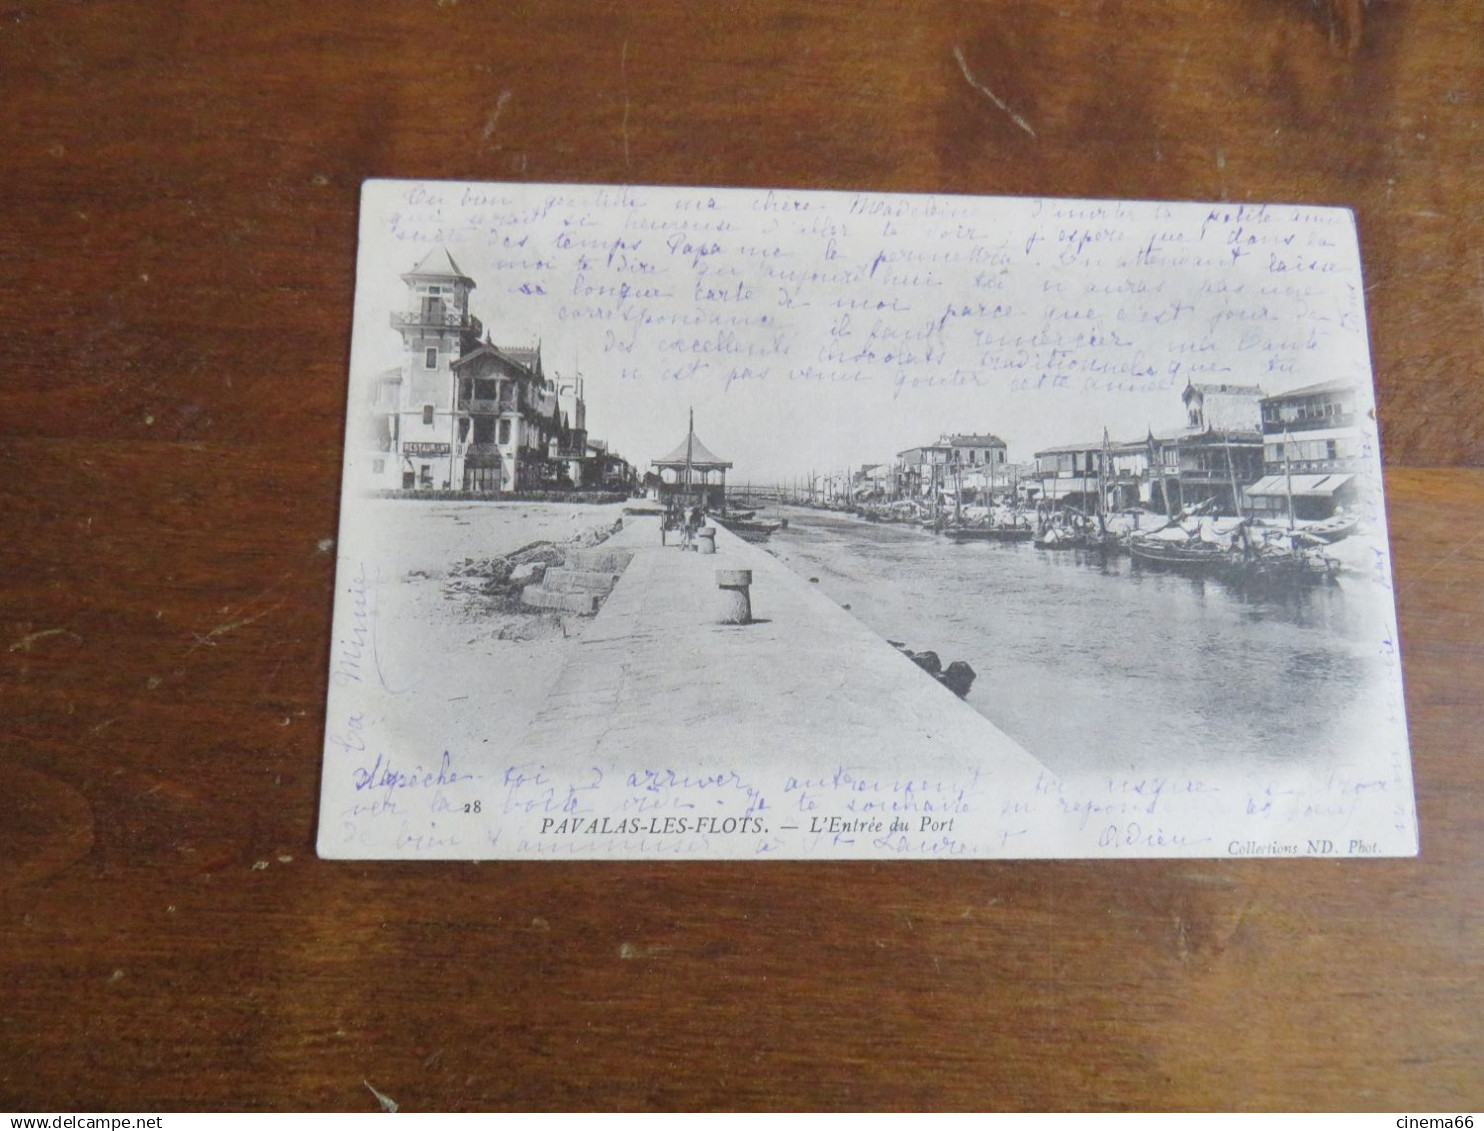 bien gentille ma chère Madeleine d'inviter ta petite amie
qui serait si heureuse d'aller te voir, j'espère que dans la
des temps Papa me le permettra. En attendant laisse
moi te dire qu'aujourd'hui tu n'auras pas une
si longue carte de moi parce que c'est jour de
correspondance, il faut remercier ma tante
des excellents chocolats traditionnels que tu
n'est pas venu gouter cette année
RESTAURANT
pas
ta Minnie
dépêche toi d'arriver autrement toi risque trou
ver la boîte vide. Je te souhaite en réponse
28
PAVALAS-LES-FLOTS. — L'Entrée du Port
de bien t'ammuser à St Laurent Adieu
Collections ND. Phot.
delcampe.net
cinema66